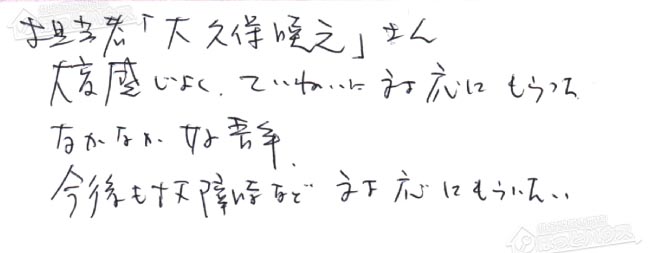 担当者「大久保暁之」さん
大変感じよく、ていねいに対応してもらった
なかなか好青年、
今後も故障時など対応してもらいたい